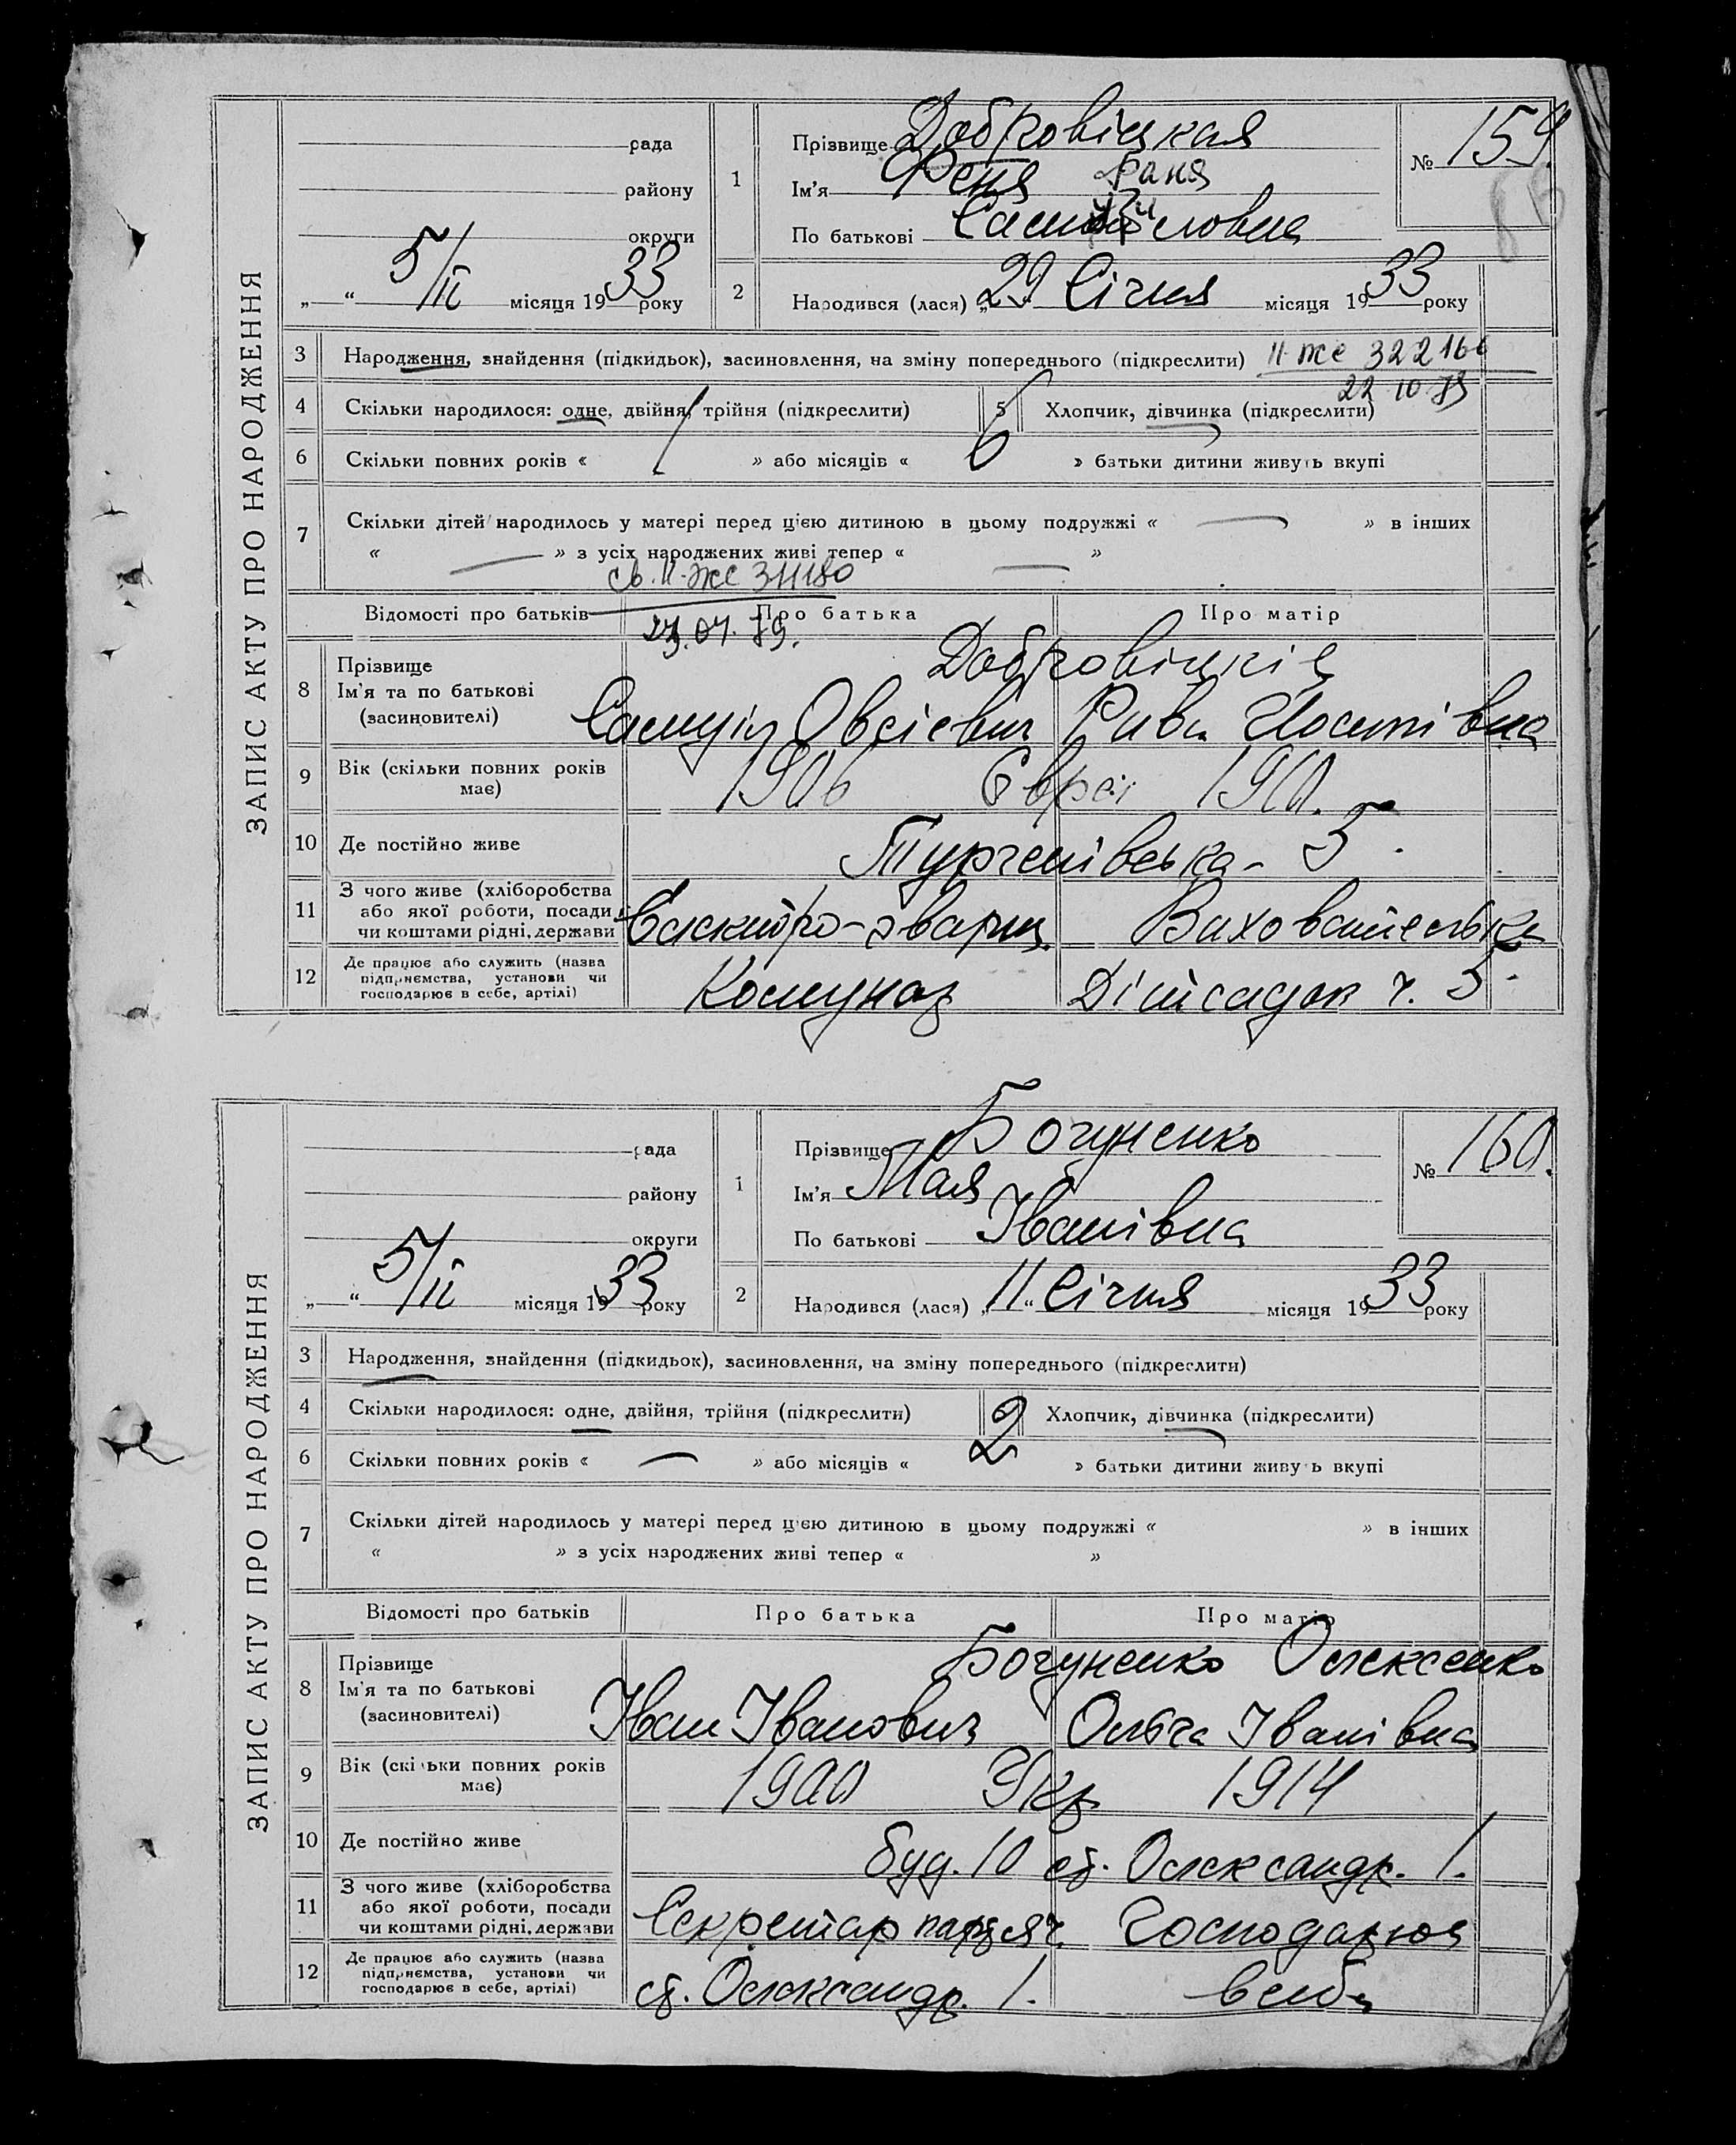 ЗАПИС АКТУ ПРО НАРОДЖЕННЯ
рада
району
округи
„ “ 5/II місяця 1933 року
1
Прізвище Добровіцкая
Ім'я Феня Фаня
По батькові
№ 159.
2
Народився (лася) „29 Січня місяця 1933 року
3 Народження, знайдення (підкидьок), засиновлення, на зміну попереднього (підкреслити) II-ЖС 322166
22 10.79
4 Скільки народилося: одне, двійня, трійня (підкреслити) 5 Хлопчик, дівчинка (підкреслити)
6 Скільки повних років « 1 » або місяців « 6 » батьки дитини живуть вкупі
7 Скільки дітей народилось у матері перед цією дитиною в цьому подружжі « — » в інших
« — » з усіх народжених живі тепер « — »
св. II-ЖС 311180
Відомості про батьків Про батька Про матір
23.07.79.
8 Прізвище Добровіцкіє
Ім'я та по батькові
(засиновителі) Самуіл Овсієвич Рива Йосипівна
9 Вік (скільки повних років має) 1906 Євреї 1910.
10 Де постійно живе Тургенівська - 5.
11 З чого живе (хліборобства
або якої роботи, посади
чи коштами рідні, держави Єлектро-зварщ. Вихователька
12 Де працює або служить (назва
підприємства, установи чи
господарює в себе, артілі) Комунар Дітсадок ч. 5.
ЗАПИС АКТУ ПРО НАРОДЖЕННЯ
рада
району
округи
„ “ 5/II місяця 1933 року
1
Прізвище Богуненко
Ім'я Мая
По батькові Іванівна
№ 160.
2
Народився (лася) „11“ Січня місяця 1933 року
3 Народження, знайдення (підкидьок), засиновлення, на зміну попереднього (підкреслити)
4 Скільки народилося: одне, двійня, трійня (підкреслити) Хлопчик, дівчинка (підкреслити)
6 Скільки повних років « — » або місяців « 2 » батьки дитини живуть вкупі
7 Скільки дітей народилось у матері перед цією дитиною в цьому подружжі « » в інших
« » з усіх народжених живі тепер « »
Відомості про батьків Про батька Про матір
8 Прізвище Богуненко Олексенко
Ім'я та по батькові
(засиновителі) Іван Іванович Ольга Іванівна
9 Вік (скільки повних років має) 1900 Укр 1914
10 Де постійно живе буд. 10 ст. Олександр. 1.
11 З чого живе (хліборобства
або якої роботи, посади
чи коштами рідні, держави Секретар Господарює
12 Де працює або служить (назва
підприємства, установи чи
господарює в себе, артілі) ст. Олександр. 1. в себе